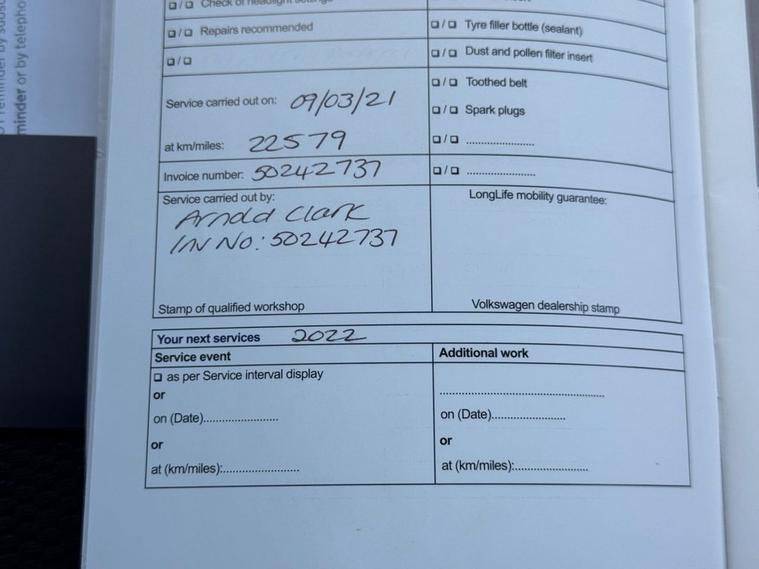 minder or by telepho
❑/❑ Check of headlight settings
❑/❑ Repairs recommended
❑/❑
Service carried out on: 09/03/21
at km/miles: 22579
Invoice number: 50242737
Service carried out by:
Arnold Clark
INV No.: 50242737
Stamp of qualified workshop
❑/❑ Tyre filler bottle (sealant)
❑/❑ Dust and pollen filter insert
❑/❑ Toothed belt
❑/❑ Spark plugs
❑/❑ ........................
❑/❑ ........................
LongLife mobility guarantee:
Volkswagen dealership stamp
Your next services 2022
Service event
❑ as per Service interval display
or
on (Date)........................
or
at (km/miles):........................
Additional work
.....................................................
on (Date)........................
or
at (km/miles):........................